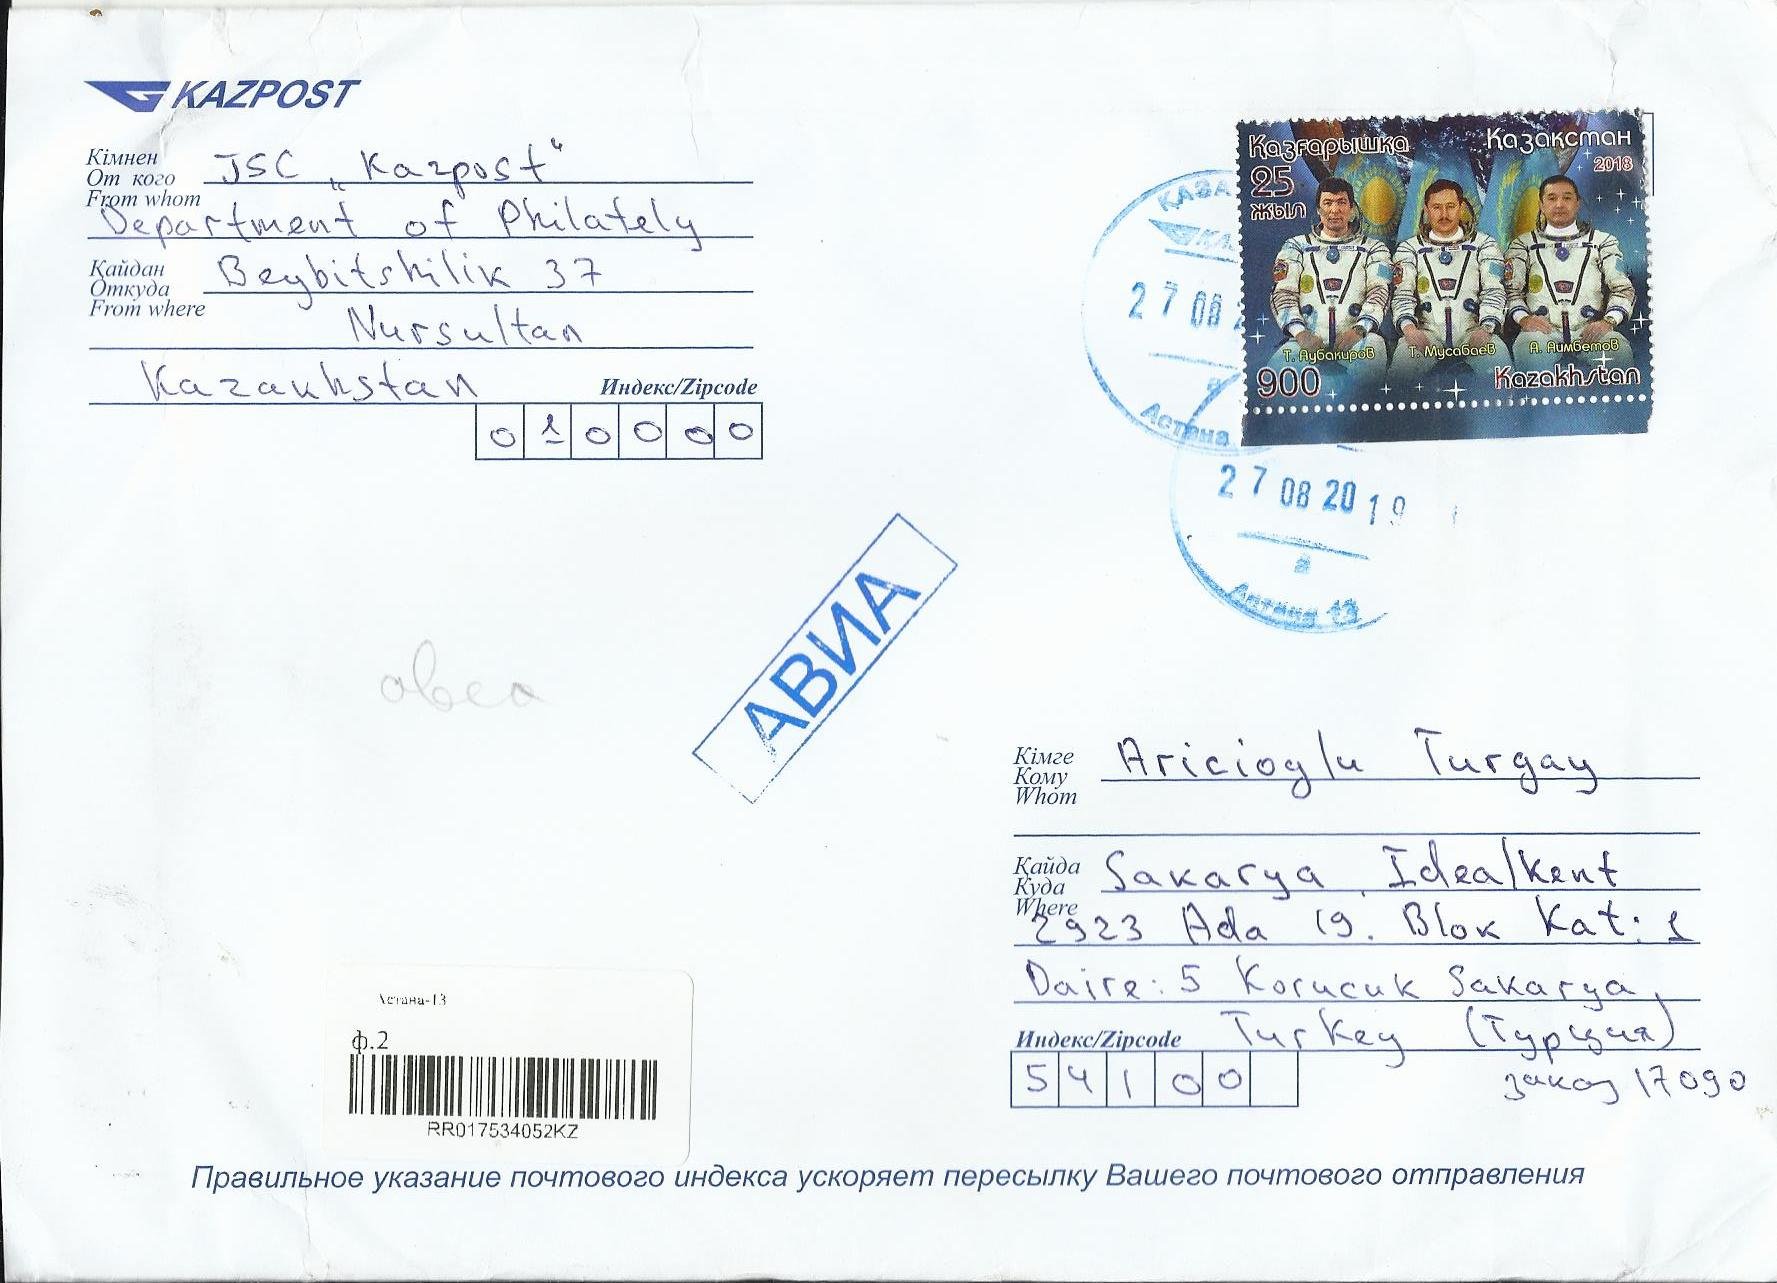 KAZPOST
Кімнен
От кого
From whom
JSC „Kazpost“
Department of Philately
Қайдан
Откуда
From where
Beybitshilik 37
Nursultan
Kazaukstan
Индекс/Zipcode
010000
Қазғарышқа
25
жыл
Қазақстан
2018
Т. Аубакиров
Т. Мусабаев
А. Аимбетов
900
Kazakhstan
27 08
Астана
27 08 2019
а
Астана 13
АВИА
Кімге
Кому
Whom
Aricioglu Turgay
Қайда
Куда
Where
Sakarya, Idealkent
2923 Ada 19. Blok Kat: 1
Daire: 5 Korucuk Sakarya,
Turkey (Турция)
Индекс/Zipcode
54100
заказ 17090
Астана-13
ф.2
RR017534052KZ
Правильное указание почтового индекса ускоряет пересылку Вашего почтового отправления